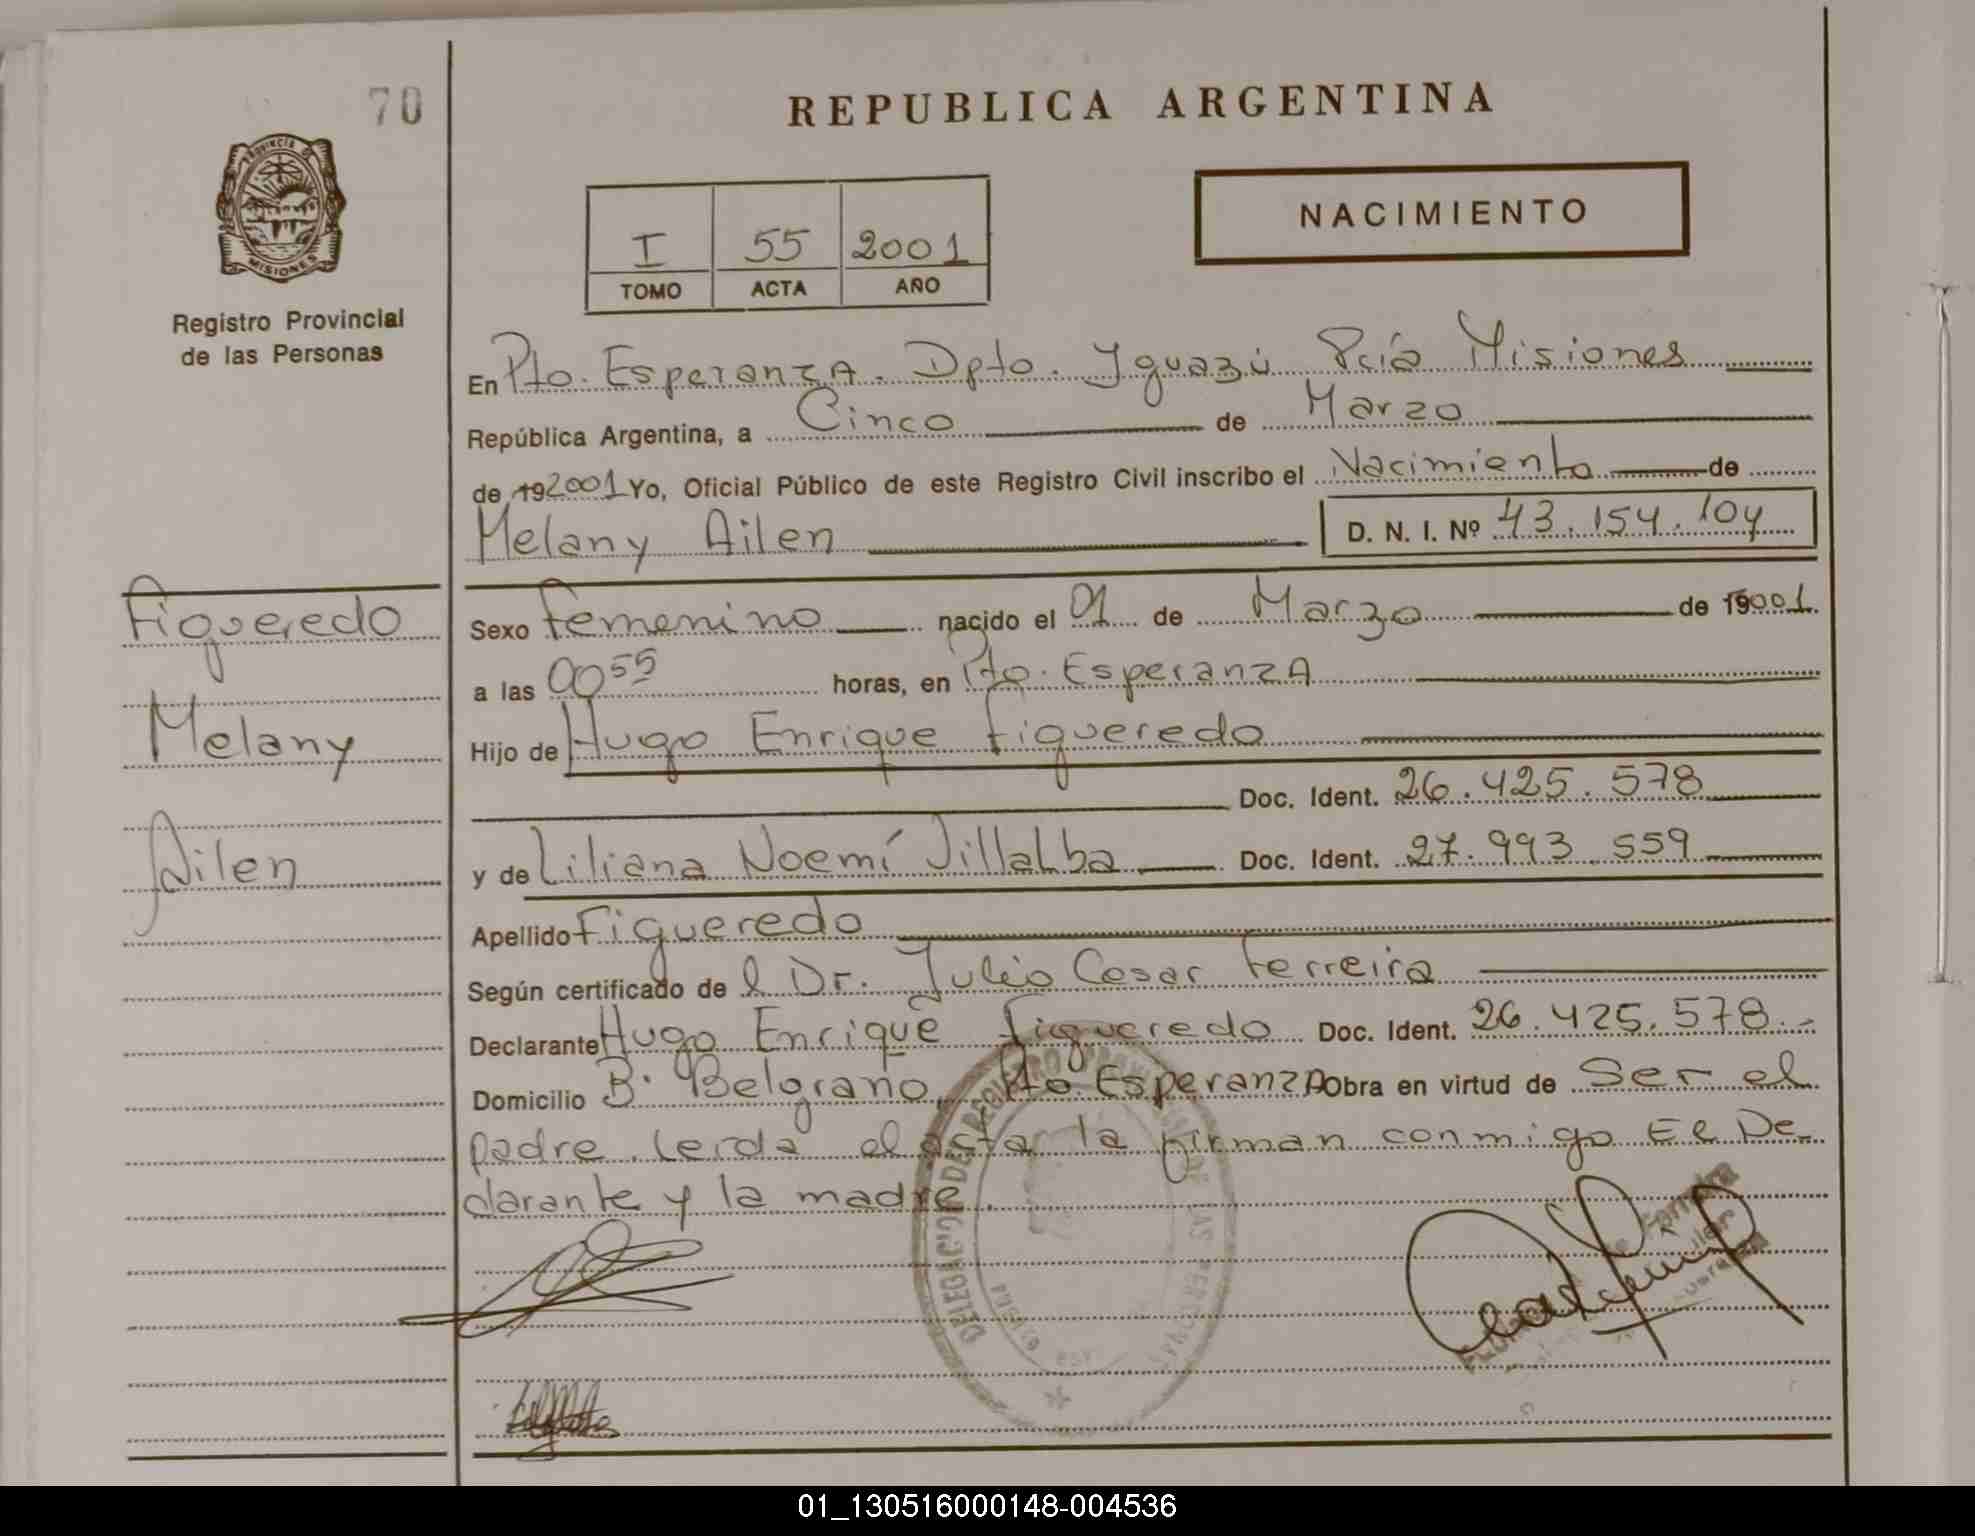 70
REPUBLICA ARGENTINA
PROVINCIA DE
MISIONES
Registro Provincial
de las Personas
I 55 2001
TOMO ACTA AÑO
NACIMIENTO
En Pto. Esperanza. Dpto. Iguazú Pcia Misiones
República Argentina, a Cinco de Marzo
de 192001 Yo, Oficial Público de este Registro Civil inscribo el Nacimiento de
Melany Ailen D. N. I. Nº 43.154.104
Figueredo
Melany
Ailen
Sexo Femenino nacido el 01 de Marzo de 2001.
a las 00 55 horas, en Pto. Esperanza
Hijo de Hugo Enrique Figueredo
Doc. Ident. 26.425.578
y de Liliana Noemí Villalba Doc. Ident. 27.993.559
Apellido Figueredo
Según certificado del Dr. Julio Cesar Ferreira
Declarante Hugo Enrique Figueredo Doc. Ident. 26.425.578.-
Domicilio Bº Belgrano, Pto. Esperanza Obra en virtud de Ser el
padre. Leida el acta la firman conmigo El De-
clarante y la madre.
01_130516000148-004536